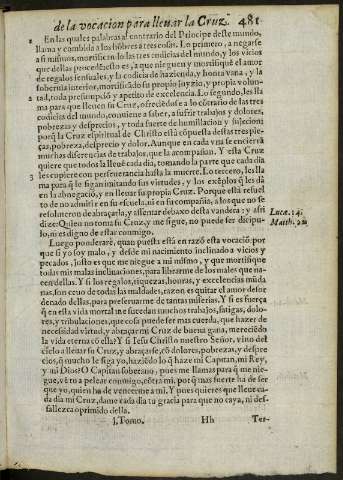 de la vocacion para lleuar la Cruz. 481
2 En las quales palabras al contrario del Principe deste mundo,
llama y combida a los hõbres a tres cosas. Lo primero, a negarse
a si mismos, mortificando las tres codicias del mundo, y los vicios
que dellas proceden: esto es, a que nieguen y mortifiquẽ el amor
de regalos sensuales, y la codicia de hazienda, y honra vana, y la
soberuia interior, mortificãdo su propio juyzio, y propia volun-
tad, toda presumpciõ y apetito de excelencia. Lo segundo, les lla
ma para que lleuen su Cruz, ofreciẽdose a lo cõtrario de las tres
codicias del mundo, conuiene a saber, a sufrir trabajos y dolores,
pobrezas y desprecios, y toda suerte de humillacion y sujecion
porq̃ la Cruz espiritual de Christo està cõpuesta destas tres pie-
ças, pobreza, desprecio y dolor. Aunque en cada vna se encierrã
muchas diferencias de trabajos, que la acompañan. Y esta Cruz
quiere que todos la lleuẽ cada dia, tomando la parte que cada dia
3 les cupiere con perseuerancia hasta la muerte. Lo tercero, les lla
ma para q̃ le sigan imitando sus virtudes, y los exẽplos q̃ les dà
en la abnegaciõ, y en lleuar su propia Cruz. Porque està resuel
to de no admitir en su escuela, ni en su compañia, a los que no se
resoluieren de abraçarlo, y assentar debaxo desta vandera: y assi
dize: Quien no toma su Cruz, y me sigue, no puede ser dicipu-
lo, ni es digno de estar conmigo.
Luca. 14.
Matth. 10.
Luego ponderarè, quan puesta està en razõ esta vocaciõ: por
que si yo soy malo, y desde mi nacimiento inclinado a vicios y
pecados, justo es que me niegue a mi mismo, y que mortifique
todas mis malas inclinaciones, para librarme de los males que na-
cen dellas. Y si los regalos, riquezas, honras, y excelencias mũda
nas, son ceuo de todas las maldades, razon es quitar el amor desor
denado dellas, para preseruarme de tantas miserias. Y si es fuerça
q̃ en esta vida mortal me sucedan muchos trabajos, fatigas, dolo-
res, y tribulaciones, que cosa puede ser mas cuerda, que hazer de
necessidad virtud, y abraçar mi Cruz de buena gana, mereciẽdo
la vida eterna cõ ella? Y si Iesu Christo nuestro Señor, vino del
cielo a lleuar su Cruz, y abraçarse, cõ dolores, pobrezas, y despre
cios, q̃ mucho le siga yo, haziẽdo lo q̃ haze mi Capitan, mi Rey,
y mi Dios? O Capitan soberano, pues me llamas para q̃ me nie-
gue, vẽ tu a pelear conmigo, cõtra mi, por q̃ mas fuerte ha de ser
que yo, quien ha de vencerme a mi. Y pues quieres que lleue ca-
da dia mi Cruz, dame cada dia tu gracia para que no caya, ni des-
fallezca oprimido della.
1. Tomo. Hh Ter-